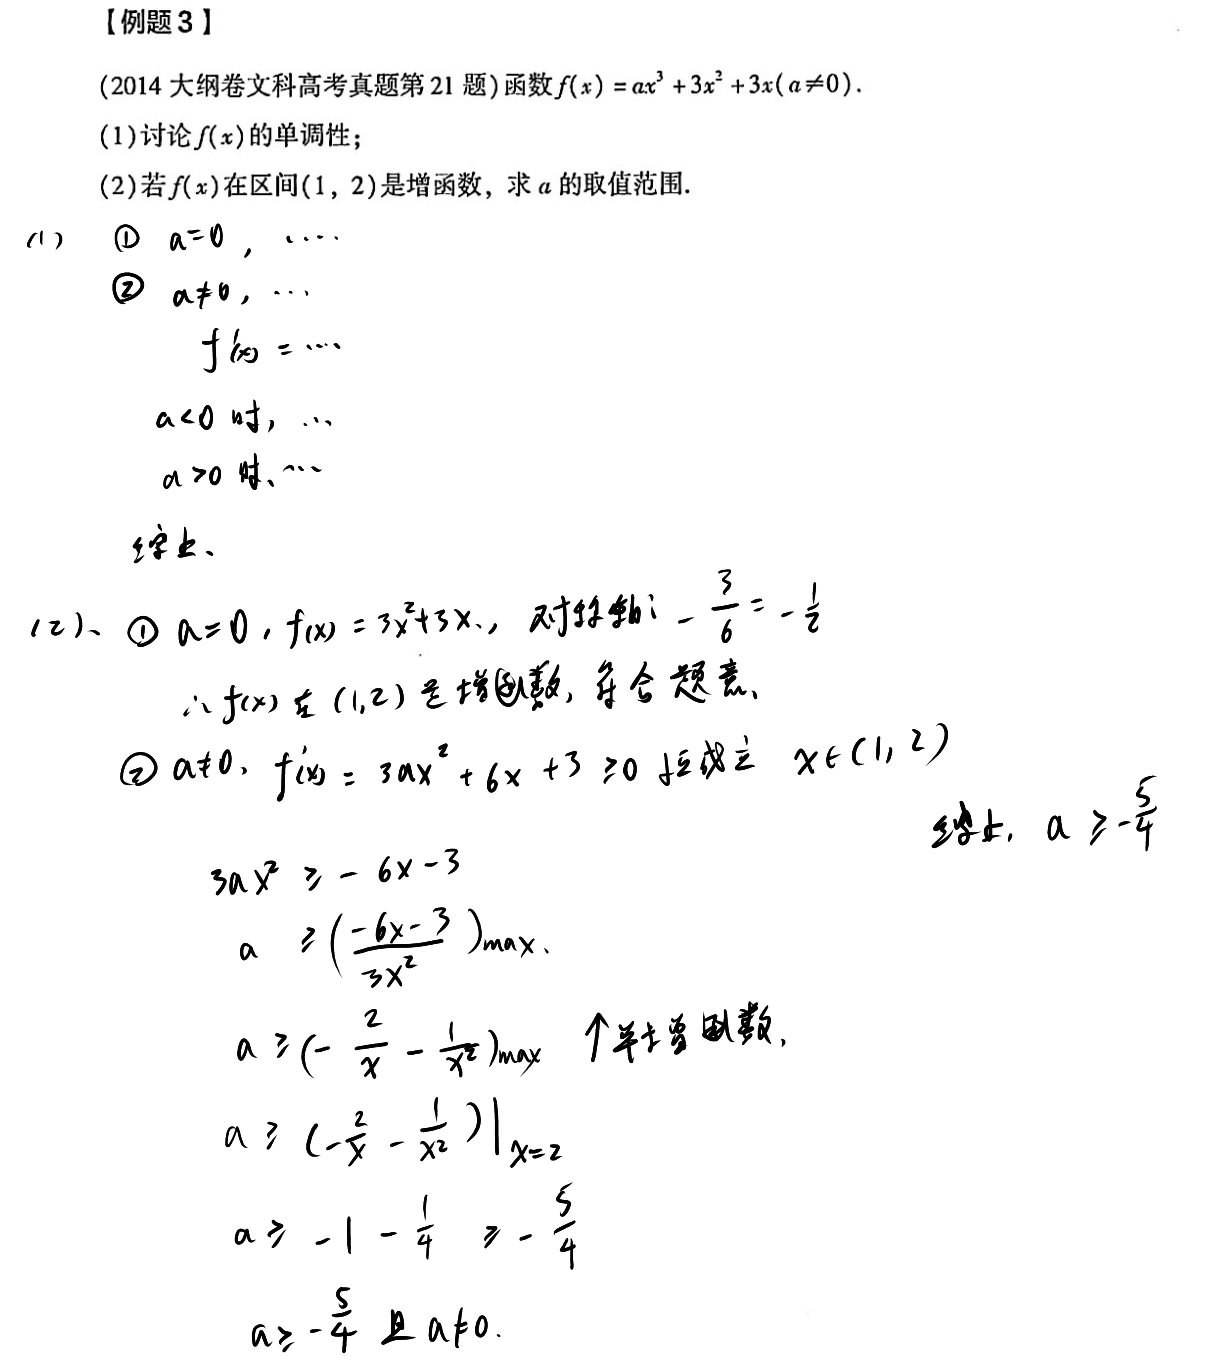 【例题3】
(2014 大纲卷文科高考真题第 21 题)函数 f(x) = ax³ + 3x² + 3x(a≠0).
(1)讨论 f(x)的单调性;
(2)若 f(x)在区间(1, 2)是增函数, 求 a 的取值范围.
(1) ① a=0, ....
② a≠0, ...
f'(x) = ....
a<0 时, ...
a>0 时、...
综上、
(2)、① a=0, f(x) = 3x²+3x., 对称轴: -3/6 = -1/2
∴ f(x) 在 (1,2) 是增函数, 符合题意、
② a≠0, f'(x) = 3ax² + 6x + 3 ≥0 恒成立 x∈(1, 2)
综上, a ≥ -5/4
3ax² ≥ -6x-3
a ≥ ((-6x-3)/(3x²))max、
a ≥ (-2/x - 1/x²)max ↑单增函数,
a ≥ (-2/x - 1/x²)|x=2
a ≥ -1 - 1/4 ≥ -5/4
a≥ -5/4 且 a≠0.